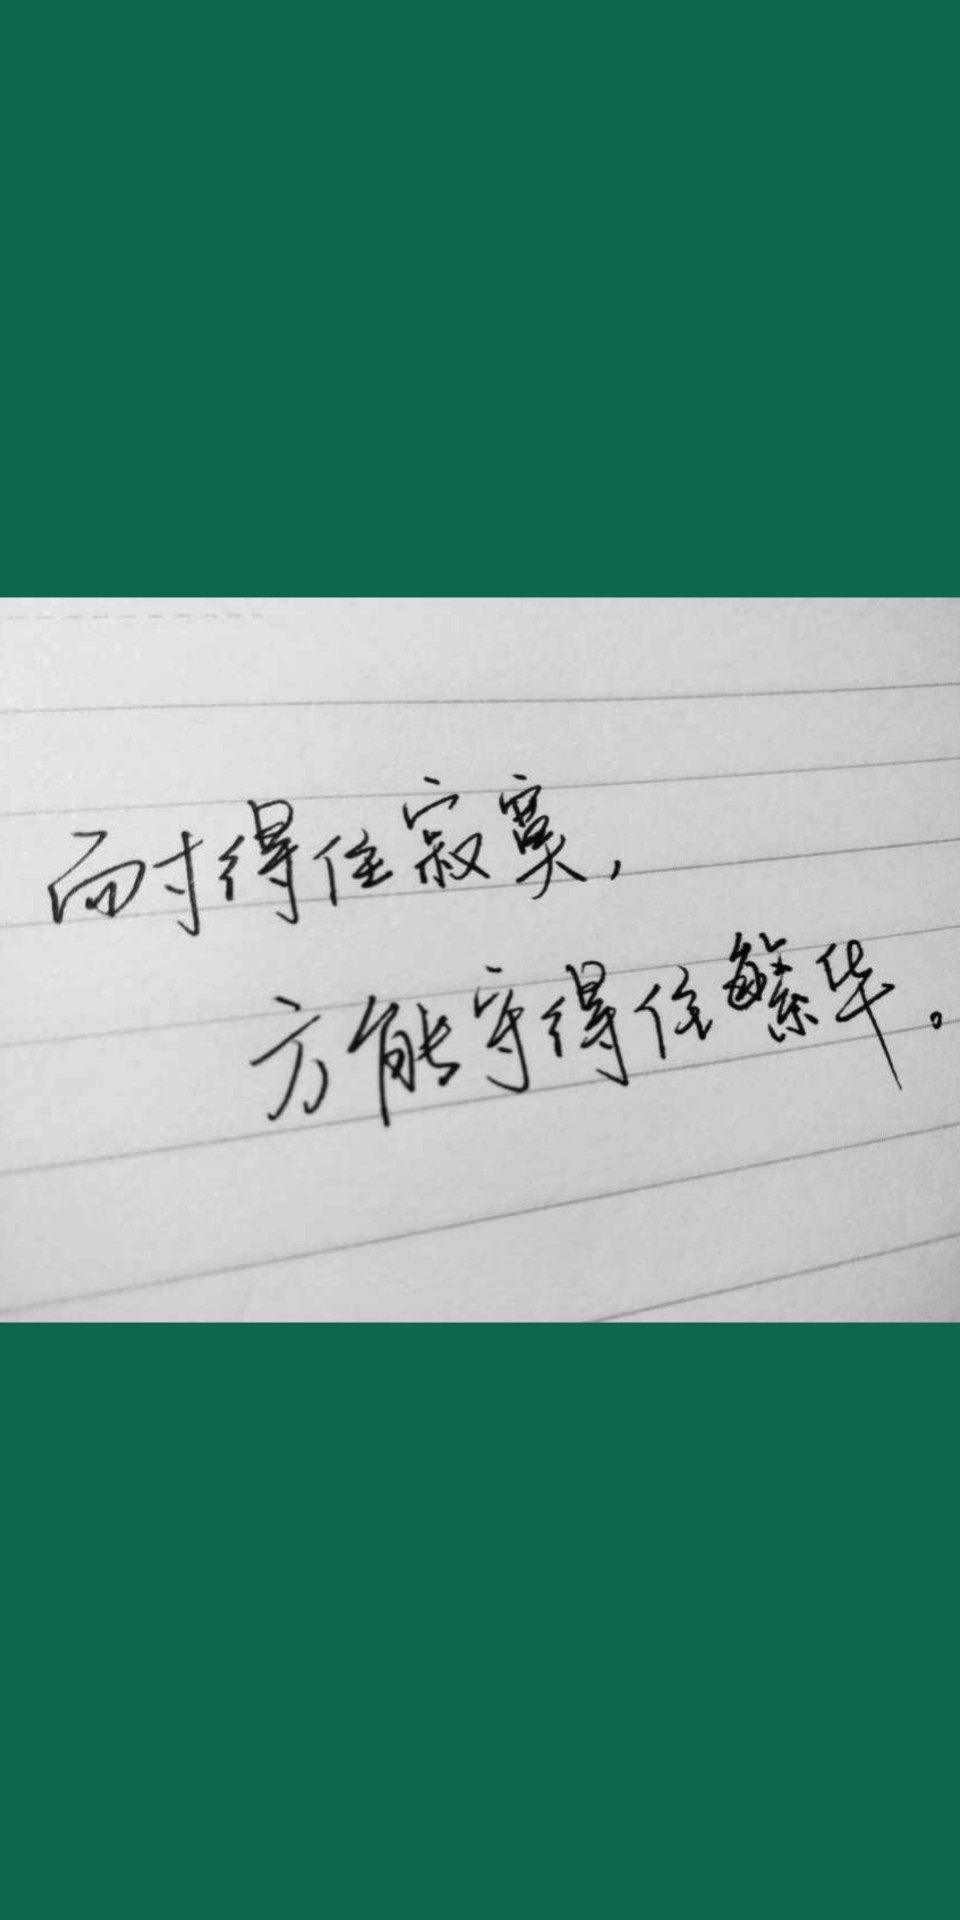 耐得住寂寞,
方能守得住繁华。